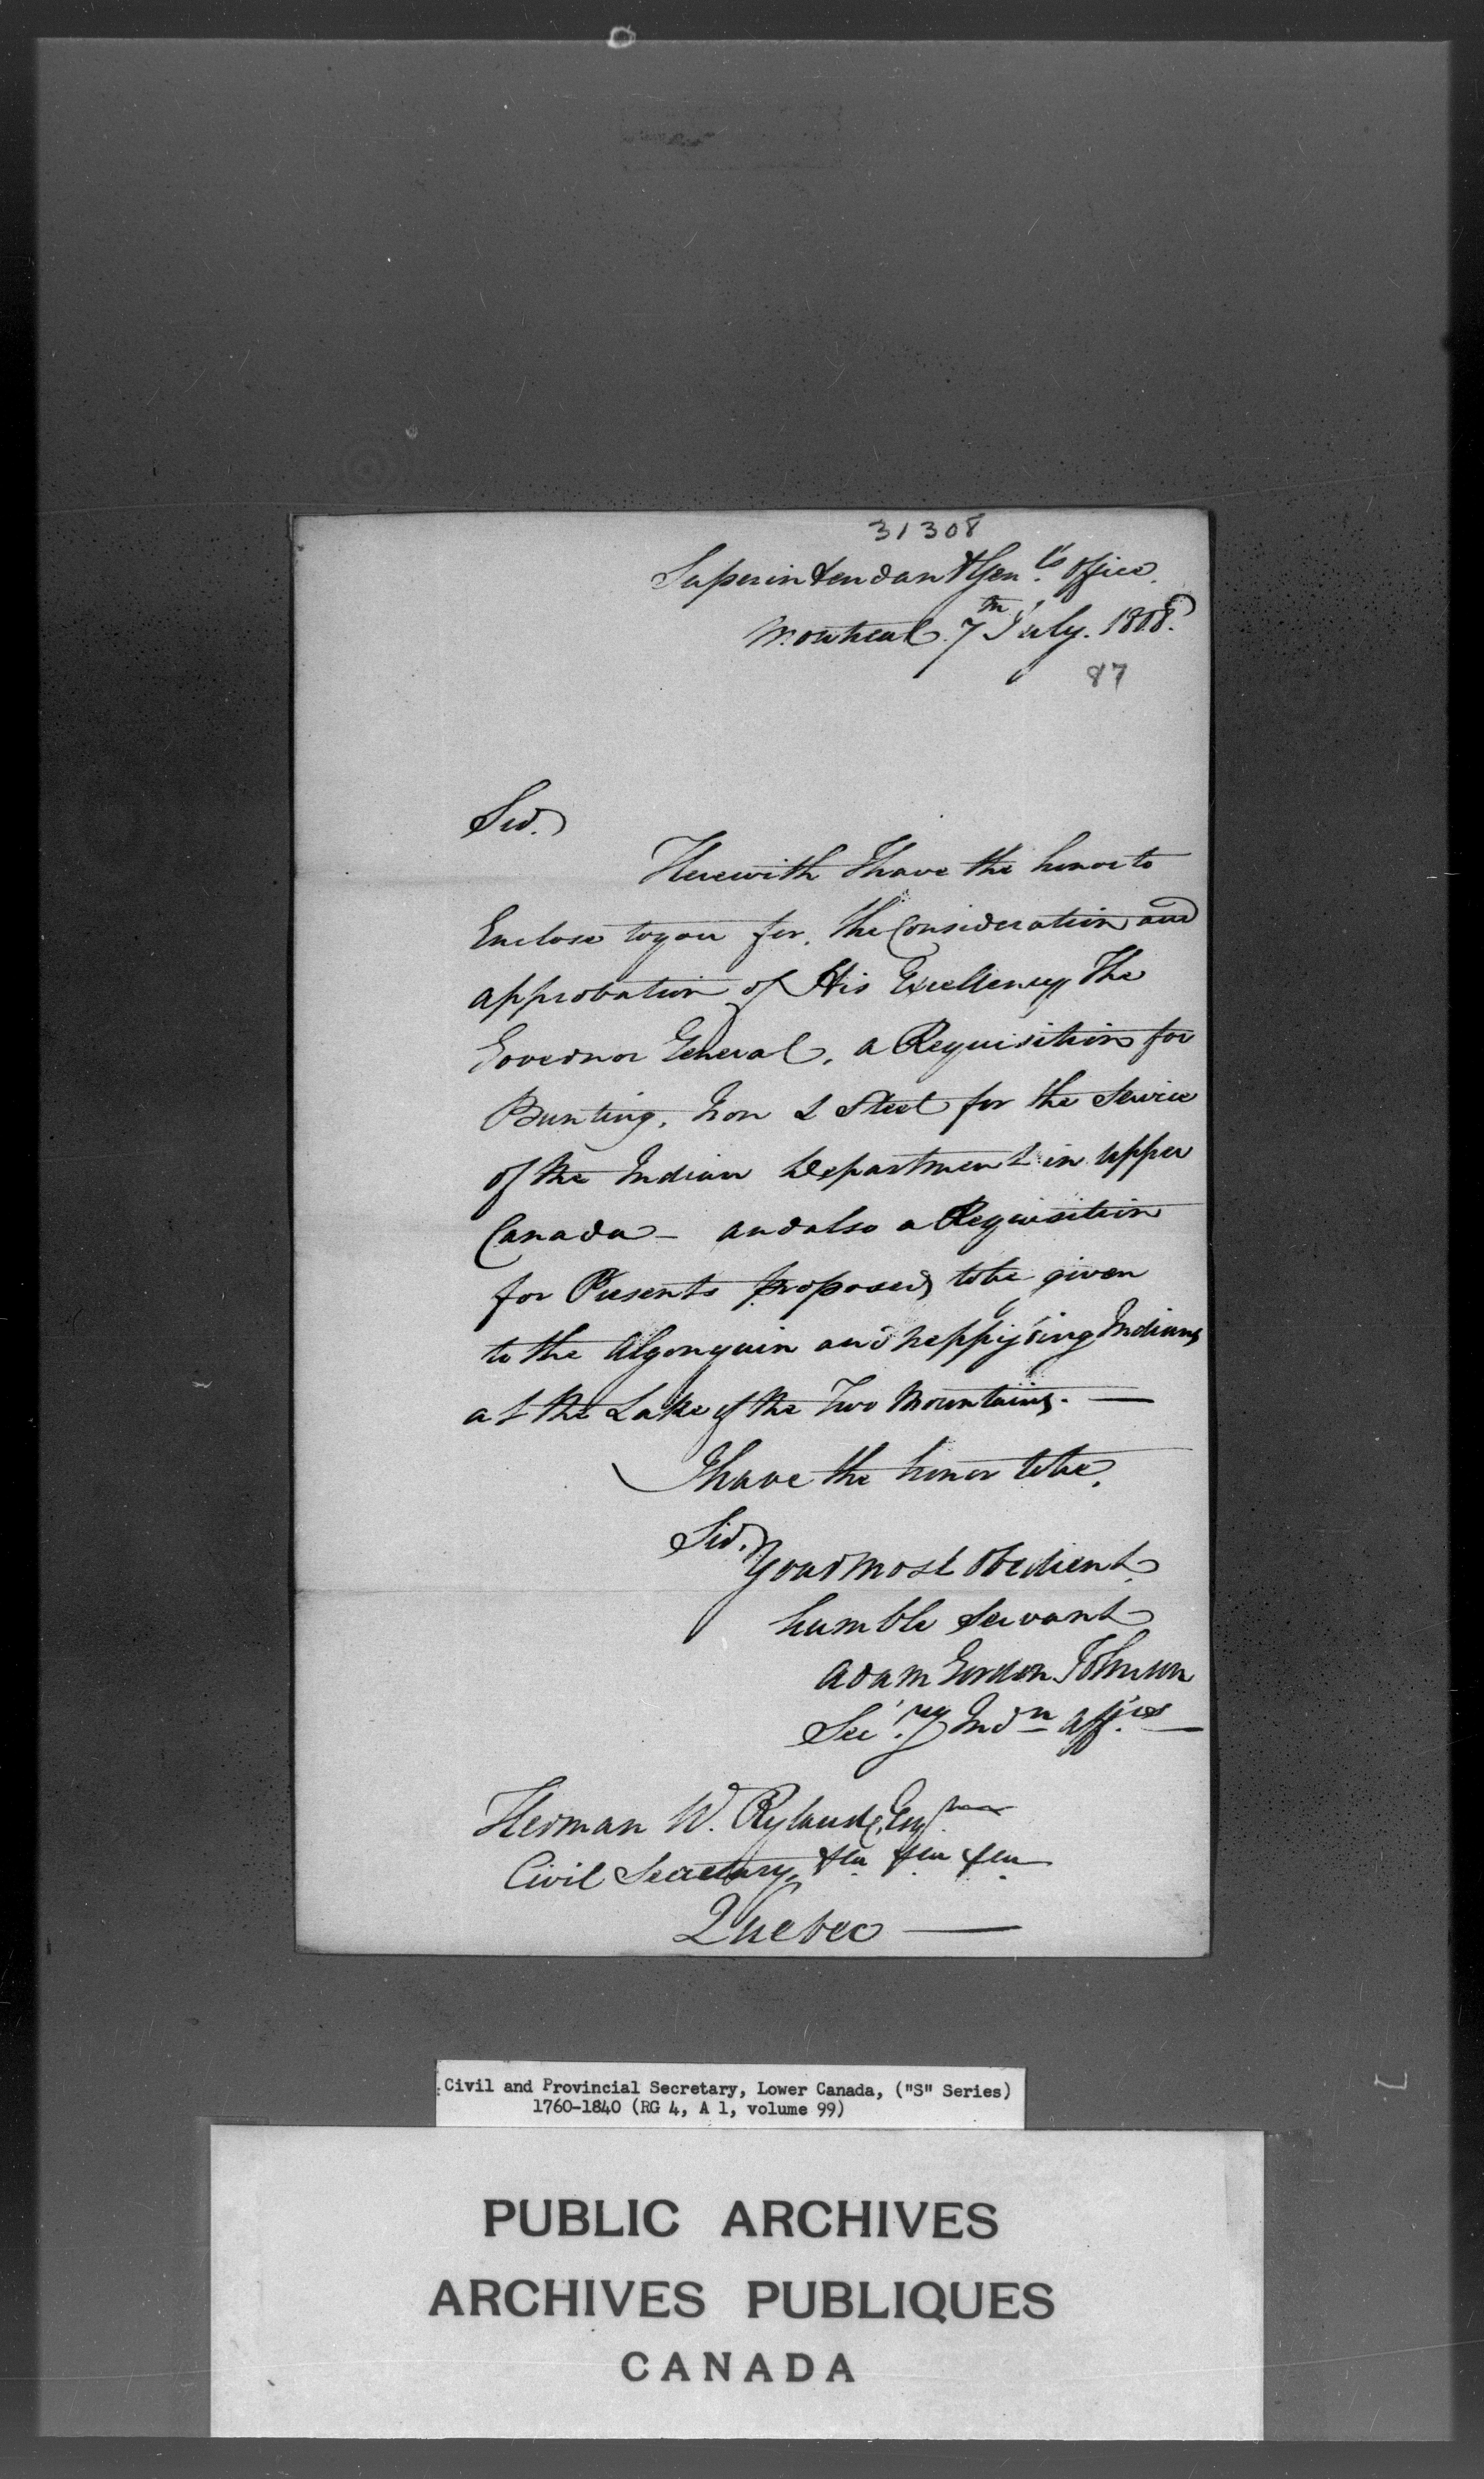 31308
Superintendant Genls. Office.
Montreal. 7th July. 1808.
87
Sir.
Herewith I have the honor to
Enclose to you for, the Consideration and
approbation of His Excellency The
Governor General, a Requisition for
Bunting, Iron & Steel for the Service
of the Indian Department in Upper
Canada - and also a Requisition
for Presents proposed to be given
to the Algonquin and Neppissing Indians
at the Lake of the Two Mountains. —
I have the honor to be,
Sir,
Your most Obedient
humble Servant
Adam Gordon Johnson
Secry Indn Affres —
Herman W. Ryland, Esqr
Civil Secretary, &ca &ca &ca
Quebec —
Civil and Provincial Secretary, Lower Canada, ("S" Series)
1760-1840 (RG 4, A 1, volume 99)
PUBLIC ARCHIVES
ARCHIVES PUBLIQUES
CANADA